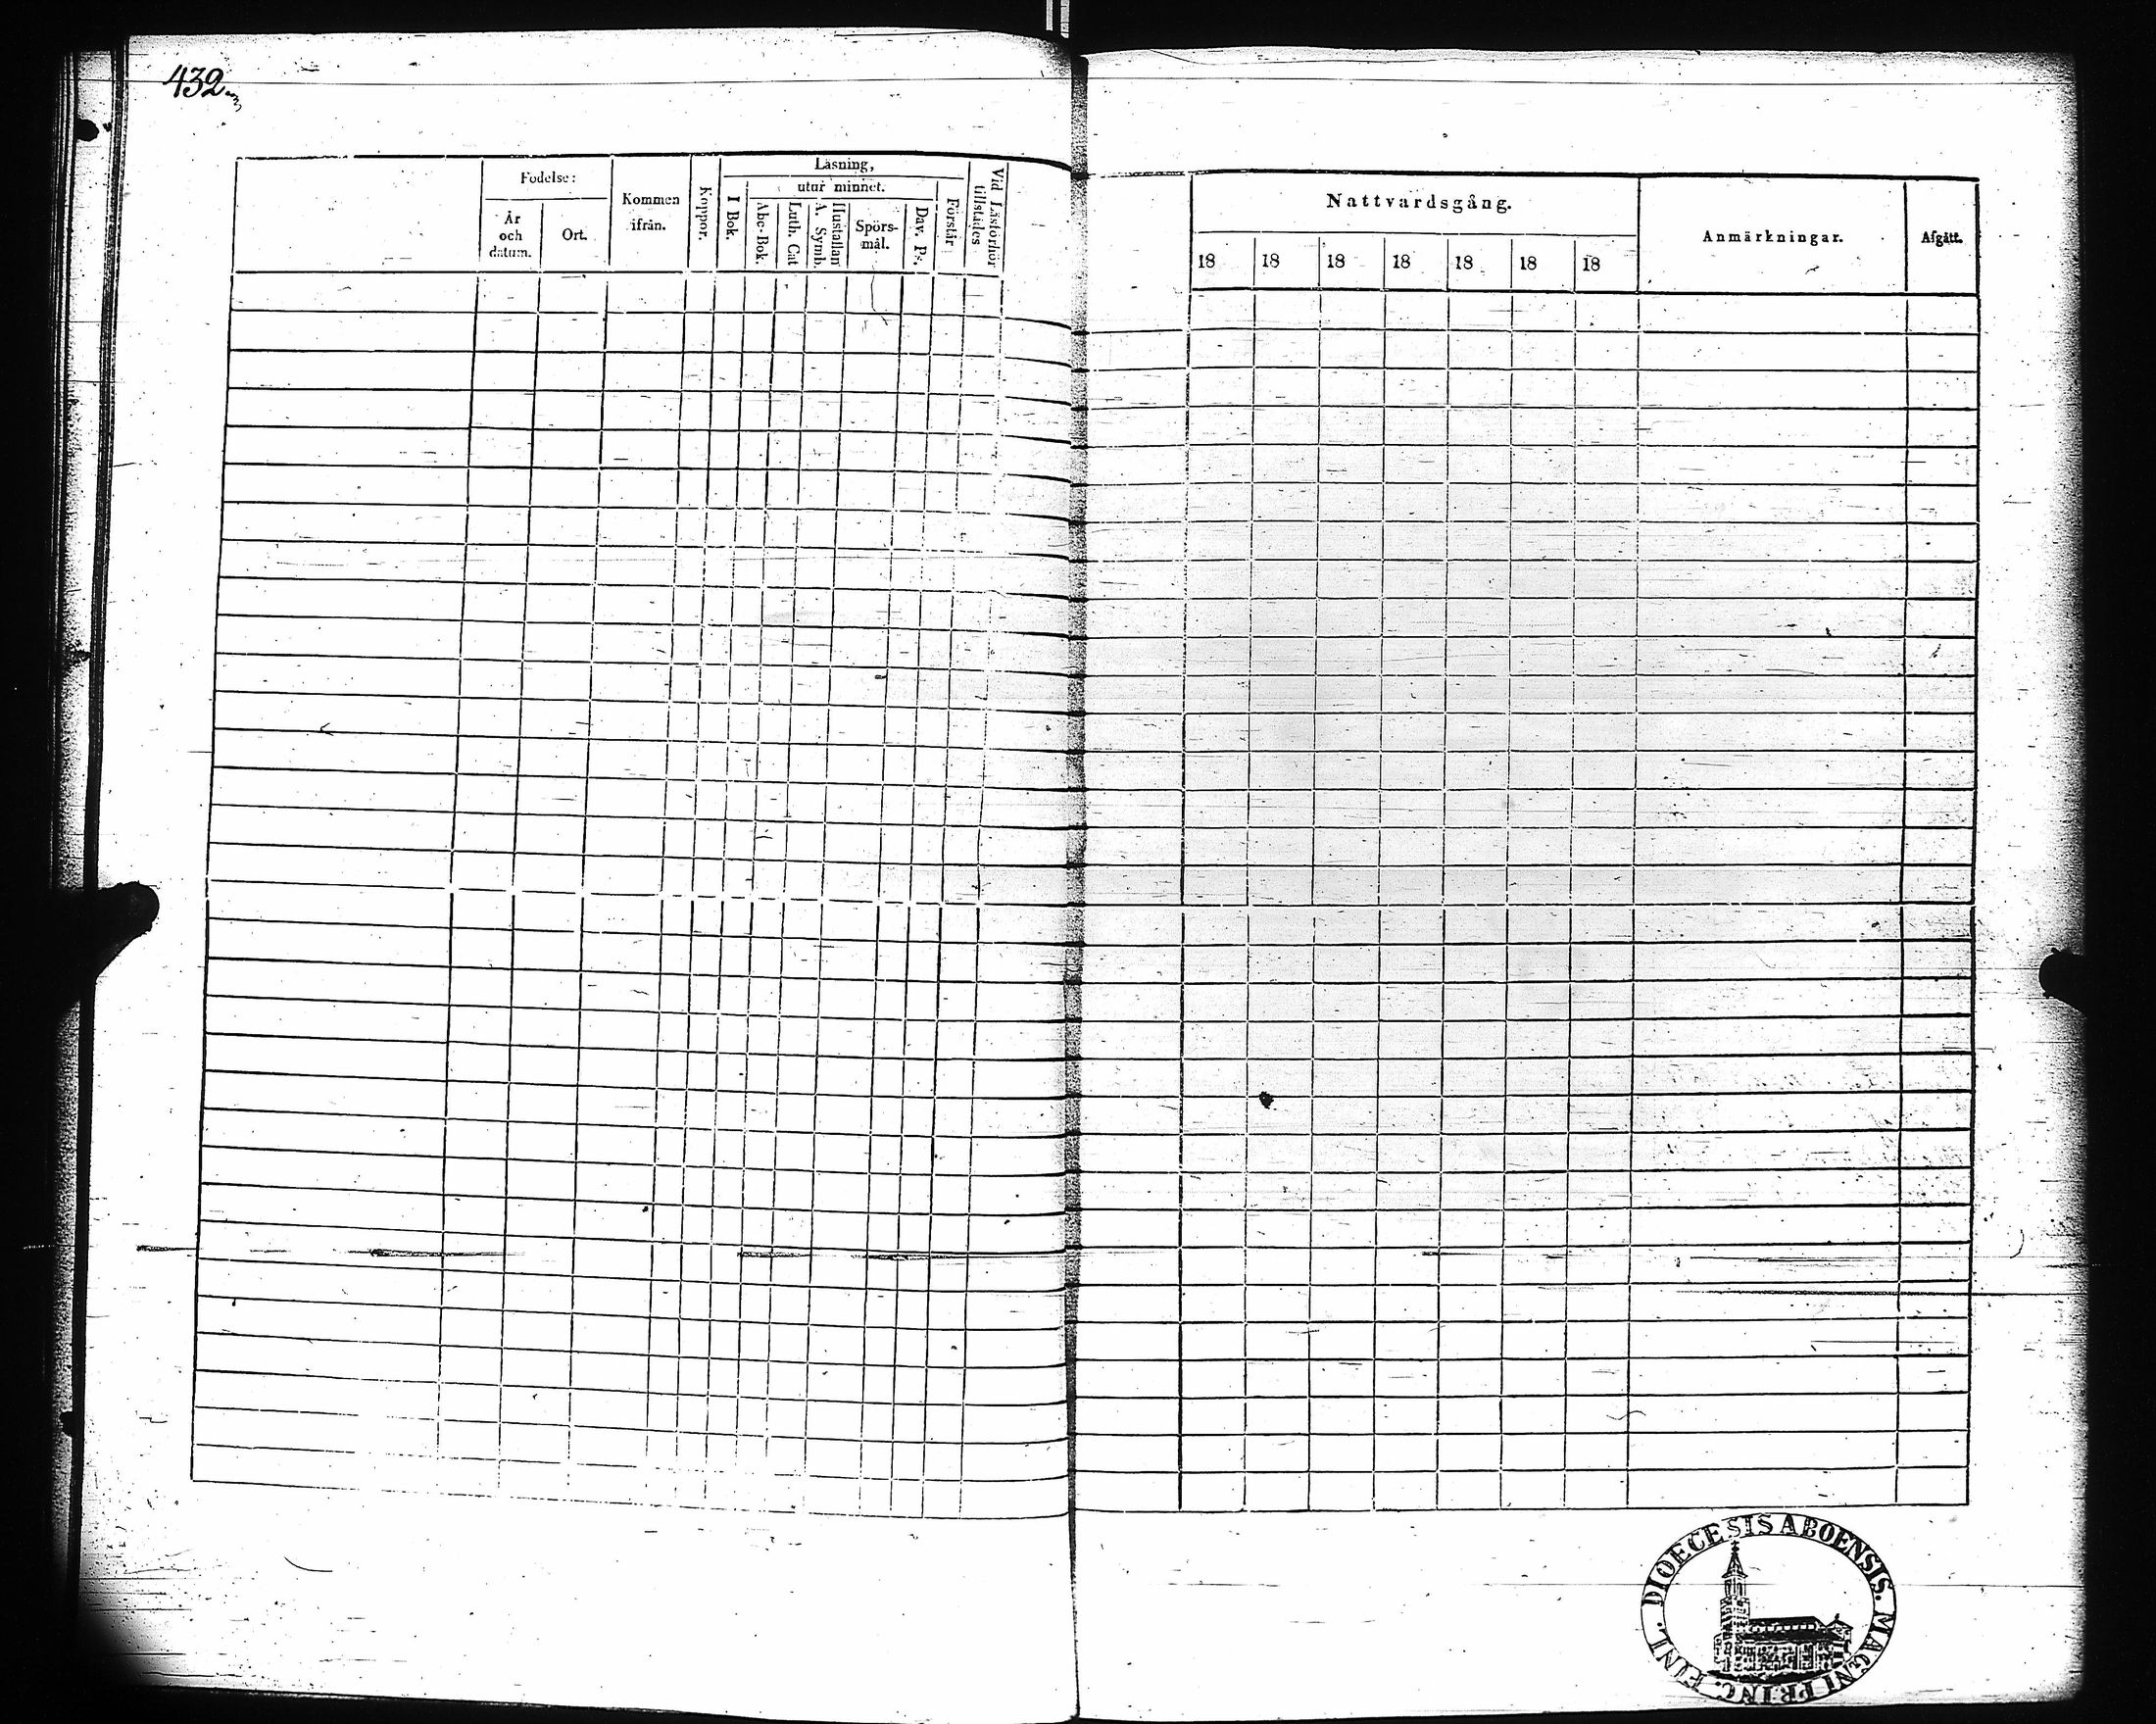 432.
Fodelse:
År
och
datum.
Ort.
Kommen
ifrån.
Koppor.
Läsning,
I Bok.
utur minnet.
Abc-Bok.
Luth. Cat
A. Symb.
Hustaflan
Spörs-
mål.
Dav. Ps.
Förstår
Vid Läsförhör
tillstädes
Nattvardsgång.
18 18 18 18 18 18 18
Anmärkningar.
Afgått.
DIOECESIS ABOENSIS. MAGNI PRINC. FINL.